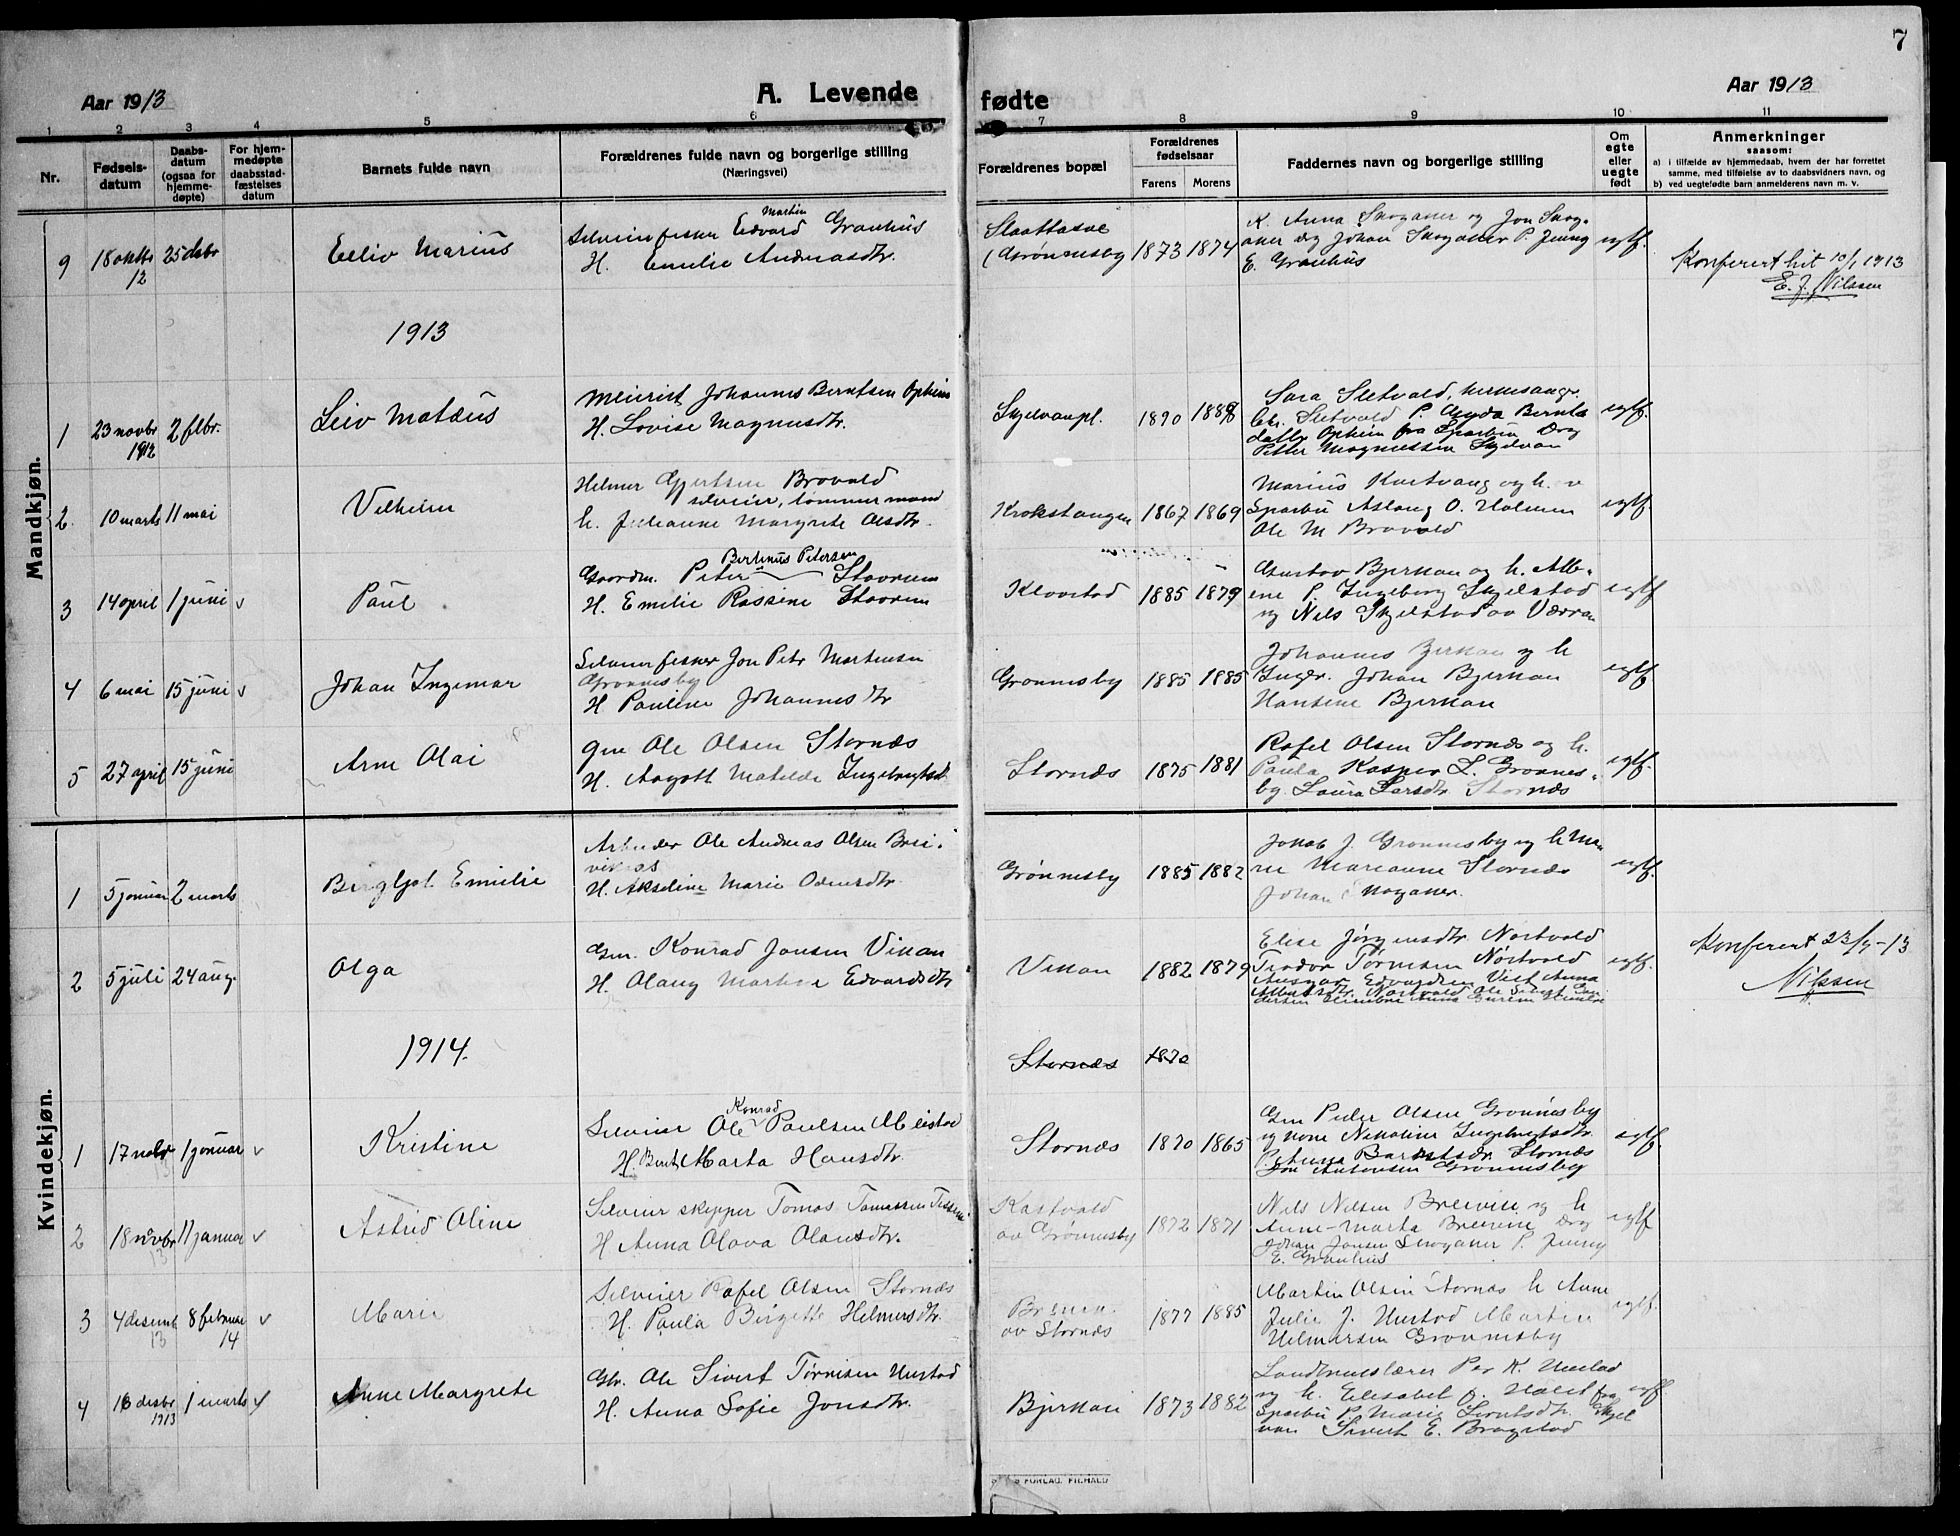 7
Aar 1913
A. Levende
fødte
Aar 1913
1 2 3 4 5 6 7 8 9 10 11
Nr.
Fødsels-
datum
Daabs-
datum
(ogsaa for
hjemme-
døpte)
For hjem-
medøpte
daabsstad-
fæstelses
datum
Barnets fulde navn
Forældrenes fulde navn og borgerlige stilling
(Næringsvei)
Forældrenes bopæl
Forældrenes
fødselsaar
Farens Morens
Faddernes navn og borgerlige stilling
Om
egte
eller
uegte
født
Anmerkninger
saasom:
a) i tilfælde av hjemmedaab, hvem der har forrettet
samme, med tilføielse av to daabsvidners navn, og
b) ved uegtefødte barn anmelderens navn m. v.
Mandkjøn.
9 18 oktbr 25 debr
12
Eeliv Marius
Martin
Selveier fisker Edvard Grønhus
H. Emelie Andreasdtr.
(Grønnesby 1873 1874
K. Anna Skoganer og Jon Skog-
aner Drg Johan Skoganer P. Jenny
E. Grønhus
egtf.
Konferert hit 10/1 1913
E. J. Nilssen
1913
1 23 novbr 2 febr.
1912
Leiv Matæus
Meierist Johannes Berntsen Opheim
H. Lovise Magnusdtr.
Skjelvanpl. 1890 1888
Sara Sletvald,
Chr. Sletvald P. Gyda Bernts
datter Opheim fra Sparbu Drg
Petter Magnussen Skjelvan
egtf.
2 10 marts 11 mai
Vilhelm
Helmer Gjertsen Brovold
selveier, tømmermand
h. Julianne Margrete Olsdtr.
Krokstangen 1867 1869
Marius Kortvang og h. av
Sparbu Aslaug O. Holmen
Ole M Brovold
egtf.
3 14 april 1 juni v
Paul
Bertinus Petersen
Gaardm. Peter Stavrum
H. Emilie Rassine Stavrum
Klovstad 1885 1879
Gustav Bjerkan og h. Albe-
ene P. Ingeborg Skjelstad
og Nils Skjelstad av Værran
egtf
4 6 mai 15 juni v
Johan Ingemar
Selveier fisker Jon Petr Martinsen
Grønnesby
H. Pauline Johannesdtr
Grønnesby 1885 1885
Johannes Bjerkan og h
Inger. Johan Bjerkan
Hansine Bjerkan
egtf
5 27 april 15 juni
Arne Olai
gm Ole Olsen Stornæs
H. Aagott Matelde Ingebrigtsd.
Stornæs 1875 1881
Rafel Olsen Stornæs og h.
Paula Kasper L. Grønnes-
by. Laura Larsdtr Stornæs
egtf.
Kvindekjøn.
1 5 januar 2 marts
Bergljot Emilie
Arbeider Ole Andreas Olsen Brei-
H. Akseline Marie Odinsdtr.
Grønnesby 1885 1882
Jakob J. Grønnesby og h Ma
rie Marianne Stornæs
Johan Skoganer.
egtf.
2 5 juli 24 aug.
Olga
Gm. Konrad Jonsen Vikan
H. Olaug Martine Edvardsdtr
Vikan 1882 1879
Elise Jørgensdtr Nortvald
Teodor Tørnisen Nortvald
egtf.
Konferert 23/9-13
Nilssen
1914.
Stornæs 1870
1 17 nobr 1 januar v
13
Kristine
Konrad
Selveier Ole Paulsen Melstad
H. Berit Marta Hansdtr.
Stornæs 1870 1865
Gm Peder Olsen Grønnesby
og kone Nikoline Ingebrigtsdtr.
P. Anna Stornæs
Jon Antonsen Grønnesby
egtf.
2 18 novbr 11 januar v
13
Astrid Oline
Selveier skipper Tomas Tomassen
H Anna Olava Olausdtr.
Kastvald
av Grønnesby 1872 1871
Nils Nilsen Breivik og h
Anne-Marta Drg
Johan Jonsen Skoganer P. Jenny
E. Grønhus
egtf
3 4 desemb 8 februar v
13 14
Marie
Selveier Rafel Olsen Stornæs
H. Paula Birgitte Helmersdtr.
av Stornæs 1877 1885
Martin Olsen Stornæs h Anne
Julie J. Hustad Martin
Helmersen Grønnesby
egtf.
4 16 desbr 1 marts v
1913
Anne Margrete
Gbr. Ole Sivert Tørnisen Hustad
H. Anna Sofie Jonsdtr.
Bjerkan 1873 1882
Landbrukslærer Per K. Hustad
og h. Elisabet f. Holst fra
Sparbu P. Marie Skjel
van Sivert E. Bragstad
egtf.